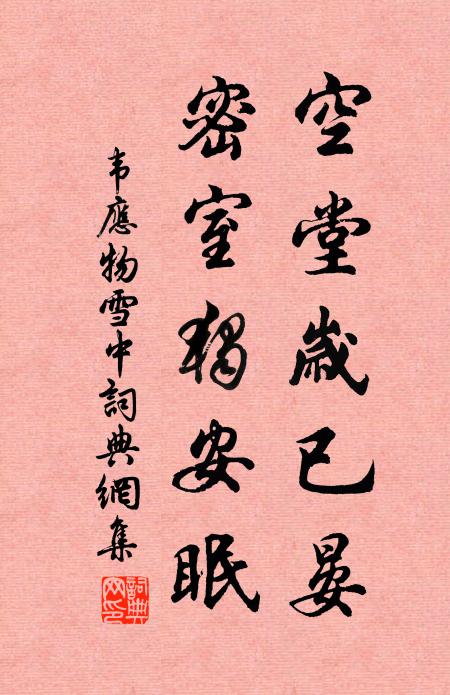 空堂歲已晏
密室獨安眠
韦應物雪中詞典網集
詞典网印